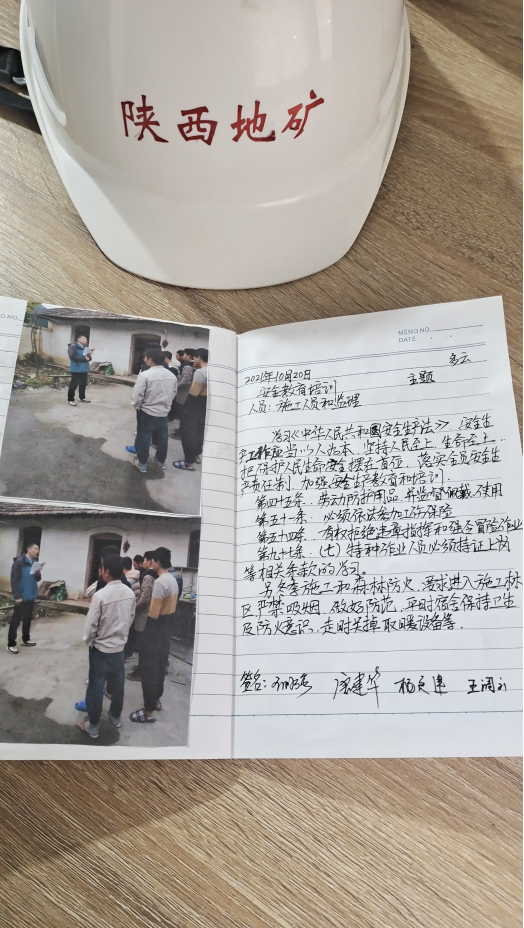 陕西地矿
MEMO NO.
DATE
多云
2021年10月20日 主题
安全教育培训
人员:施工人员和监理
学习《中华人民共和国安全生产法》,安全生
产工作应当以人为本,坚持人民至上、生命至上,
把保护人民生命安全摆在首位,落实全员安全生
产责任制,加强安全生产教育和培训。
第四十五条、劳动防护用品,并监督佩戴、使用
第五十一条、必须依法参加工伤保险
第五十四条、有权拒绝违章指挥和强令冒险作业
第九十七条、(七)特种作业人员必须持证上岗
等相关条款的学习。
另冬季施工和森林防火,要求进入施工林
区严禁吸烟,做好防范,平时宿舍保持卫生
及防火意识,走时关掉取暖设备等。
签名: